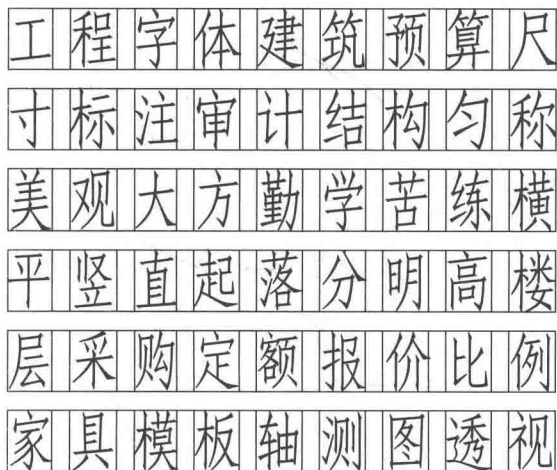 工程字体建筑预算尺
寸标注审计结构匀称
美观大方勤学苦练横
平竖直起落分明高楼
层采购定额报价比例
家具模板轴测图透视